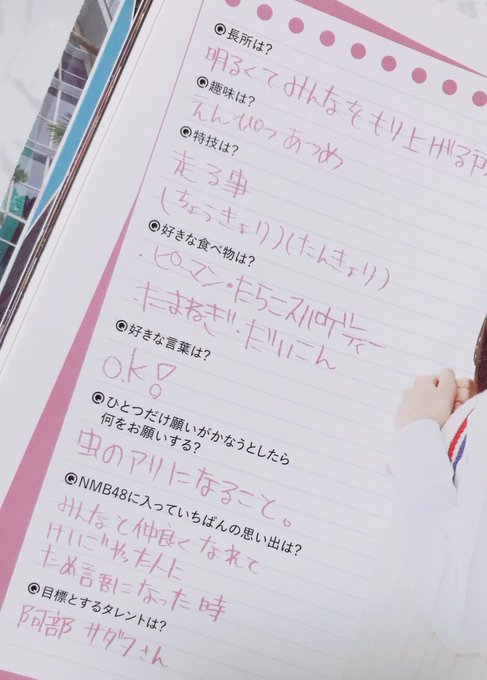 Q長所は?
明るくてみんなをもり上げる所
Q趣味は?
えんぴつあつめ
Q特技は?
走る事
(ちょうきょり)(たんきょり)
Q好きな食べ物は?
・ピーマン・たらこスパゲティー
・たまねぎ・だいこん
Q好きな言葉は?
O.K!
Qひとつだけ願いがかなうとしたら
何をお願いする?
虫のアリになること。
QNMB48に入っていちばんの思い出は?
みんなと仲良くなれて
けいごやった人に
ため言割になった時
Q目標とするタレントは?
阿部サダヲさん